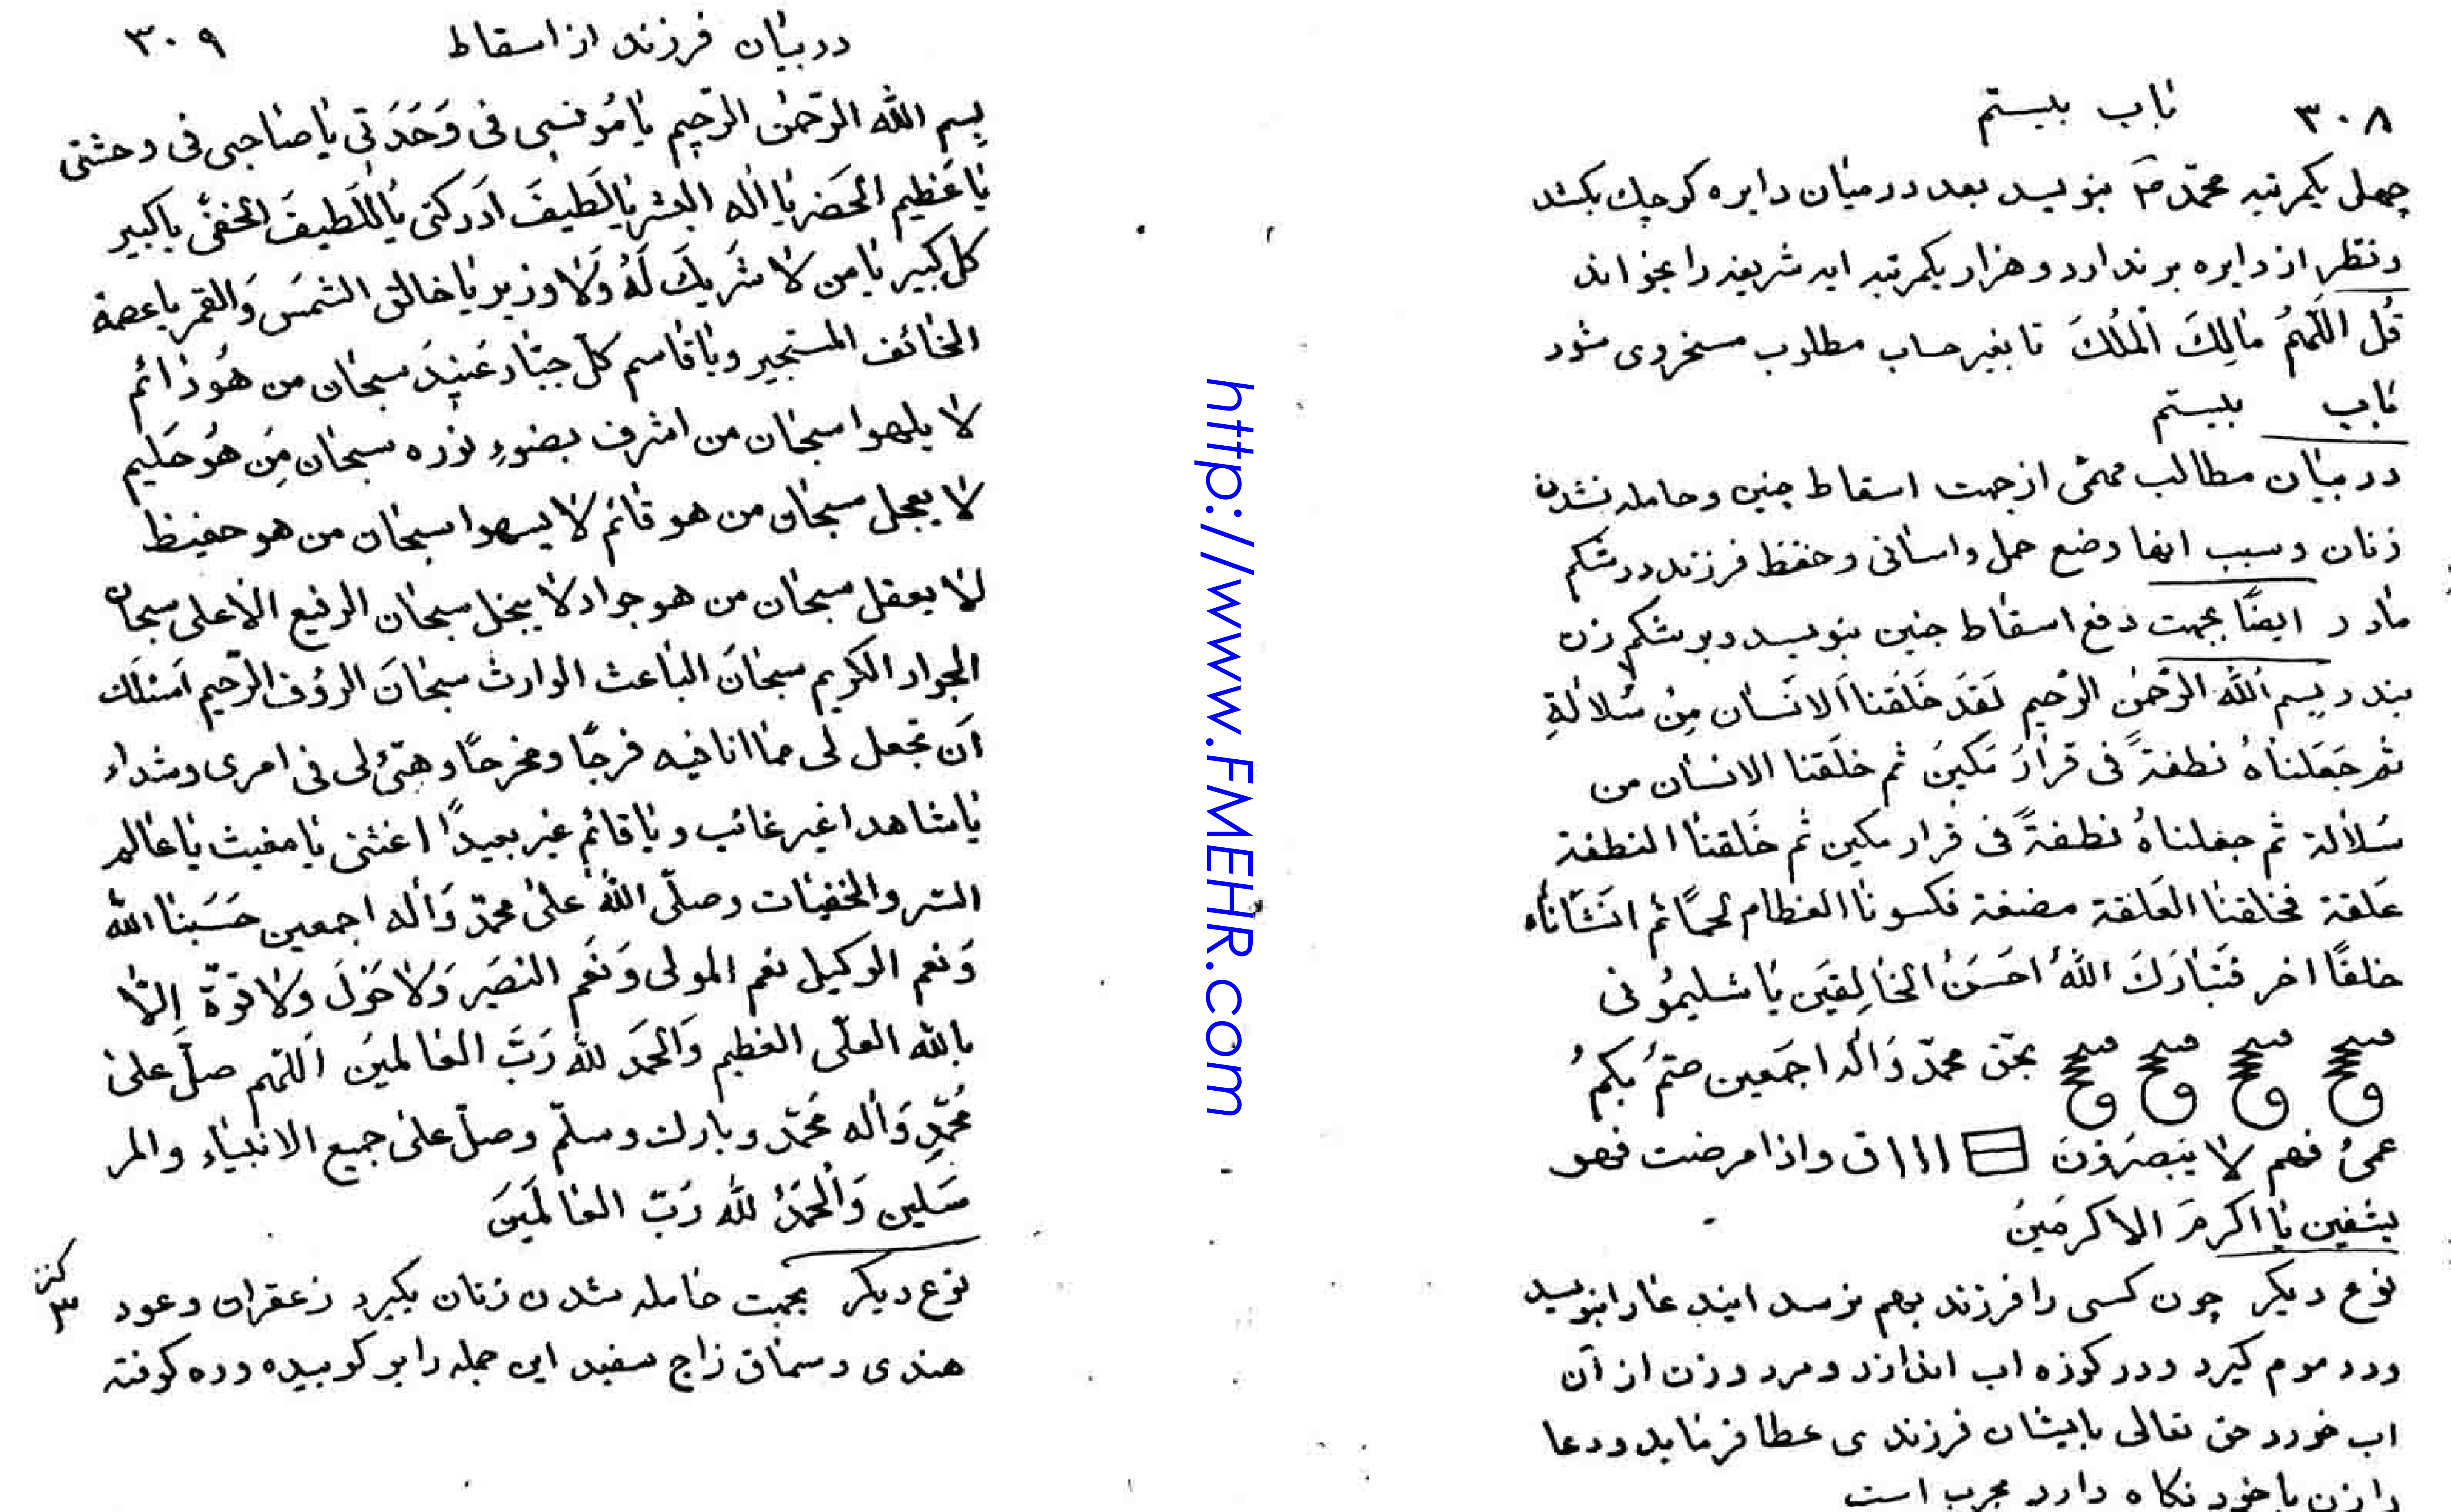 ۳۰۸ باب بیستم
چهل یکمرتبه محمّد ص بنویسد بعد درمیان دایره کوچک بکشد
ونظر از دایره برندارد و هزار یکمرتبه ایه شریفه را بخواند
قُل اللّهمُ مالِکَ المُلکَ تا بغیر حساب مطلوب مسخر وی شود
باب بیستم
در بیان مطالب مهمّی از جهت اسقاط جنین وحامله نشدن
زنان وسبب انها وضع حمل واسانی وحفظ فرزند در شکم
مادر ایضًا بجهت دفع اسقاط جنین بنویسد وبر شکم زن
بندد بسم اللّه الرّحمن الرّحیم لَقَد خَلَقنا الانسان مِن سُلالةِ
ثم جَعَلناهُ نطفةً فی قرارَ مَکینَ ثم خلَقنا الانسان من
سُلالة ثم جعلناهُ نطفةً فی قرار مکین ثم خَلقنا النطفة
عَلقة فخلقنا العَلقة مضغة فکسونا العظام لحمًا ثم انشاناه
خلقًا اخر فَتَبارَکَ اللّهُ احسَنُ الخالِقینَ یا
بحق محمّد وَاله اجمَعین صُمٌ بکمٌ
عمیٌ فهم لا یبصرونَ ۱۱۱ ق واذا مرضت فهو
یشفین یا اکرمَ الاکرمینَ
نوع دیگر چون کسی را فرزند بهم نرسد ایندعا را بنویسد
ودر موم گیرد ودر کوزه اب اندازد ومرد وزن از آن
اب خورد حق تعالی بایشان فرزندی عطا فرماید ودعا
را زن با خود نگاه دارد مجرب است
http://www.FMEHR.com
در بیان فرزند از اسقاط ۳۰۹
بسم اللّه الرّحمن الرّحیم یا مُونسی فی وَحَدَتی یا صاحبی فی وحشتی
یا عَظیم الخَضر یا اله البشر یا لَطیفَ ادَرکنی یا اللَطیفَ الخفیّ یا کبیر
کل کبیر یا من لا شَریکَ لَهُ وَلا وزیر یا خالق الشمسَ وَالقمر یا عصمة
الخائف المستجیر ویا قاسم کلّ جبّار عَنیدَ سبحان من هُو دائم
لا یلهوا سبحان من اشرف بضوءِ نوره سبحان مِن هُو حَلیم
لا یعجل سبحان من هو قائم لا یسهوا سبحان من هو حفیظ
لا یعقل سبحان من هو جواد لا یبخل سبحان الرفیع الاعلی سبحان
الجواد الکریم سبحانَ الباعث الوارث سبحانَ الرؤف الرّحیم اسئلک
اَن تجعل لی مما انا فیه فرجًا ومخرجًا وهیّئ لی فی امری ومشداء
یا شاهدا غیر غائب ویا قائم غیر بعیدًا اغثنی یا مغیث یا عالم
السّر والخفیات وصلّی اللّهُ علی محمّد وَاله اجمعین حَسَبنا اللّه
وَنعم الوکیل نعم المولی وَنَعم النصیَر وَلا حَولَ ولا قوّة الّا
باللّه العلّی العظیم وَالحمَد للّه رَبّ العالمینَ اَللّهم صلّ علی
مُحمّدِ وَاله مُحمّد وبارک وسلّم وصلّ علی جمیع الانبیاء والمر
سَلین وَالحمدُ للّه رَبّ العالمَینَ
نوع دیگر بجهت حامله شدن زنان بگیرد زعفران وعود
هندی وسماق زاج سفید این جمله را بر کوبیده وده کوفته